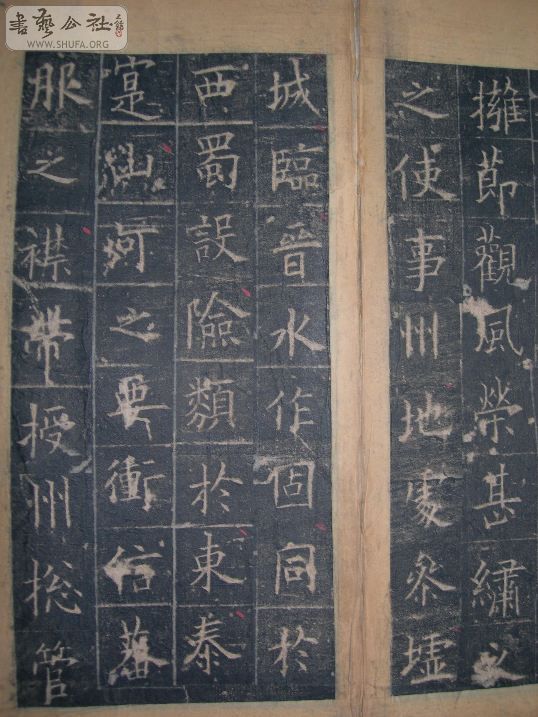 書藝公社
WWW.SHUFA.ORG
擁節觀風榮甚繡之
之使事州地處參墟
城臨晉水作固同於
西蜀設險類於東泰
寔山河之要衝信蕃
服之襟帶授州揔管